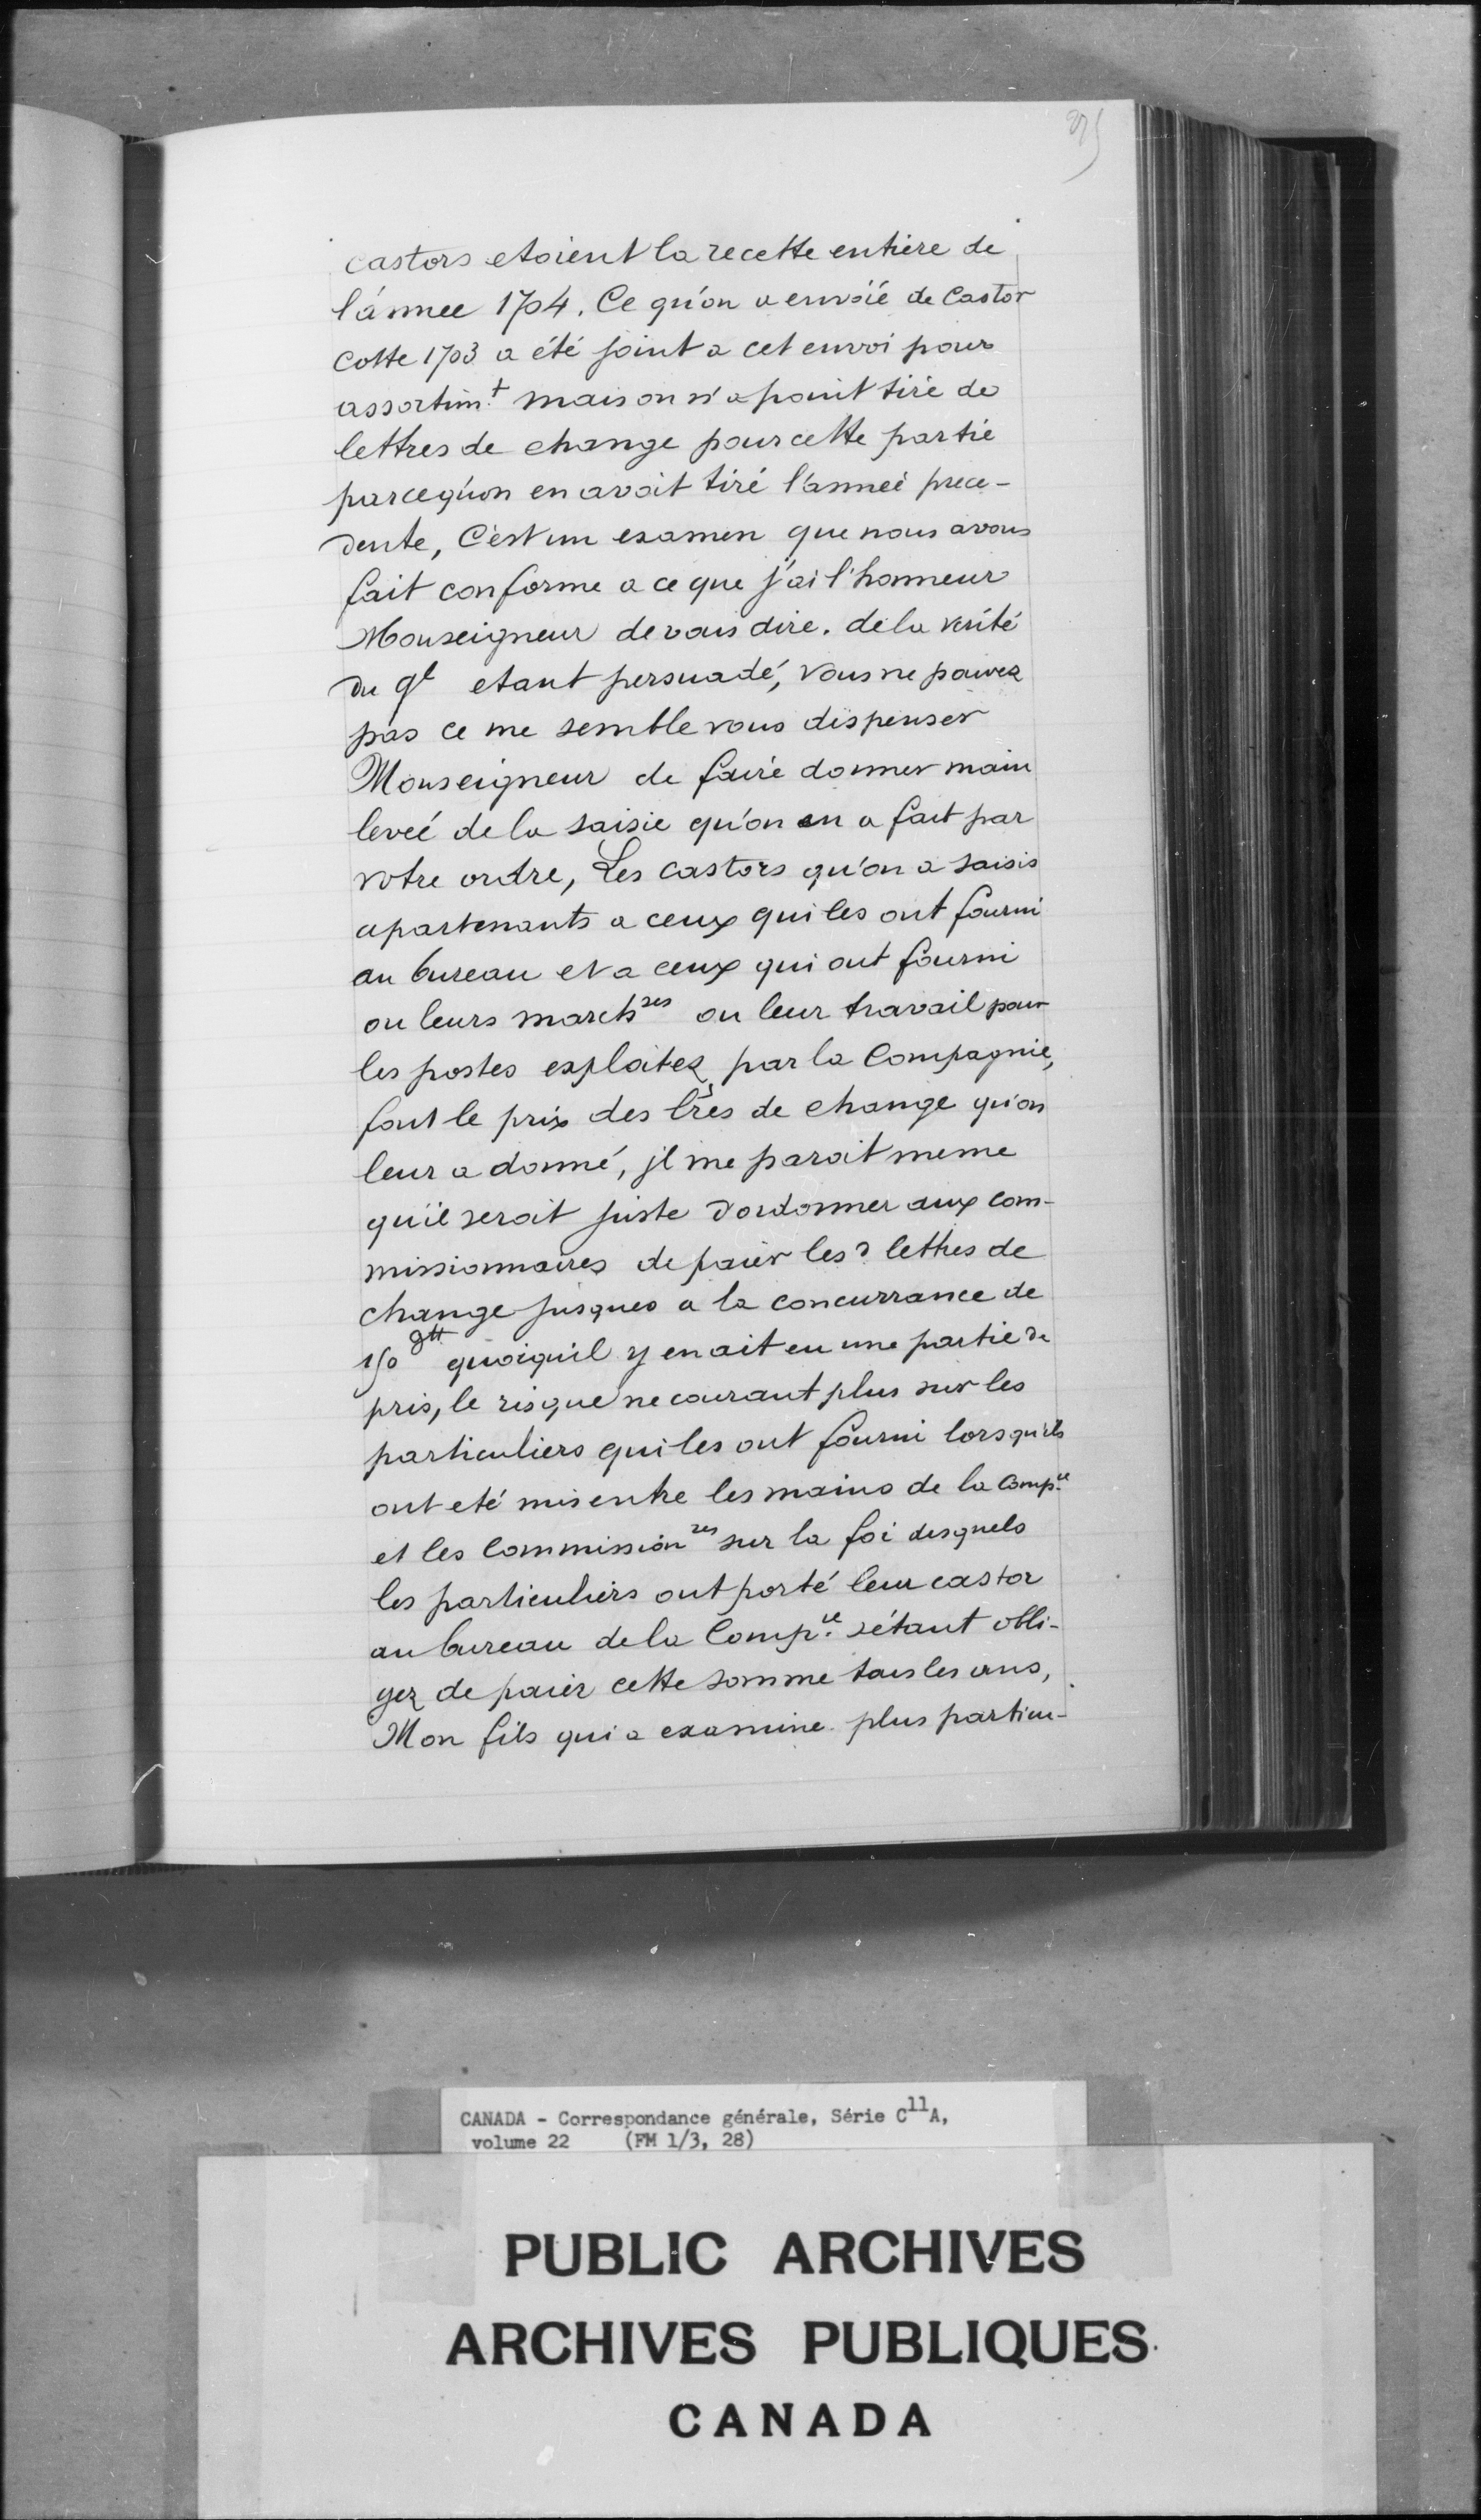 castors etoient la recette entiere de
l'année 1704. Ce qu'on a envoié de Castor
cotte 1703 a été joint a cet envoi pour
assortim.t mais on n'a point tiré de
lettres de change pour cette partie
parcequ'on en avoit tiré l'année prece-
dente, C'est un examen que nous avons
fait conforme a ce que j'ai l'honneur
Monseigneur de vous dire. de la verité
du ql etant persuadé, vous ne pouvez
pas ce me semble vous dispenser
Monseigneur de faire donner main
levée de la saisie qu'on en a fait par
votre ordre, Les castors qu'on a saisis
apartenants a ceux qui les ont fourni
au bureau et a ceux qui ont fourni
ou leurs march.ses ou leur travail pour
les postes exploitez par la Compagnie,
font le prix des lres de change qu'on
leur a donné, jl me paroit meme
qu'il seroit juste d'ordonner aux com-
missionnaires de paier les d lettres de
change jusques a la concurrance de
150 quoiquil y en ait eu une partie de
pris, le risque ne courant plus sur les
particuliers qui les ont fourni lorsqu'ils
ont eté mis entre les mains de la Comp.ie
et les Commission.res sur la foi desquels
les particuliers ont porté leur castor
au bureau de la Comp.ie s'étant obli-
gez de paier cette somme tous les ans,
Mon fils qui a examiné plus particu-
CANADA - Correspondance générale, Série C11A,
volume 22 (FM 1/3, 28)
PUBLIC ARCHIVES
ARCHIVES PUBLIQUES
CANADA